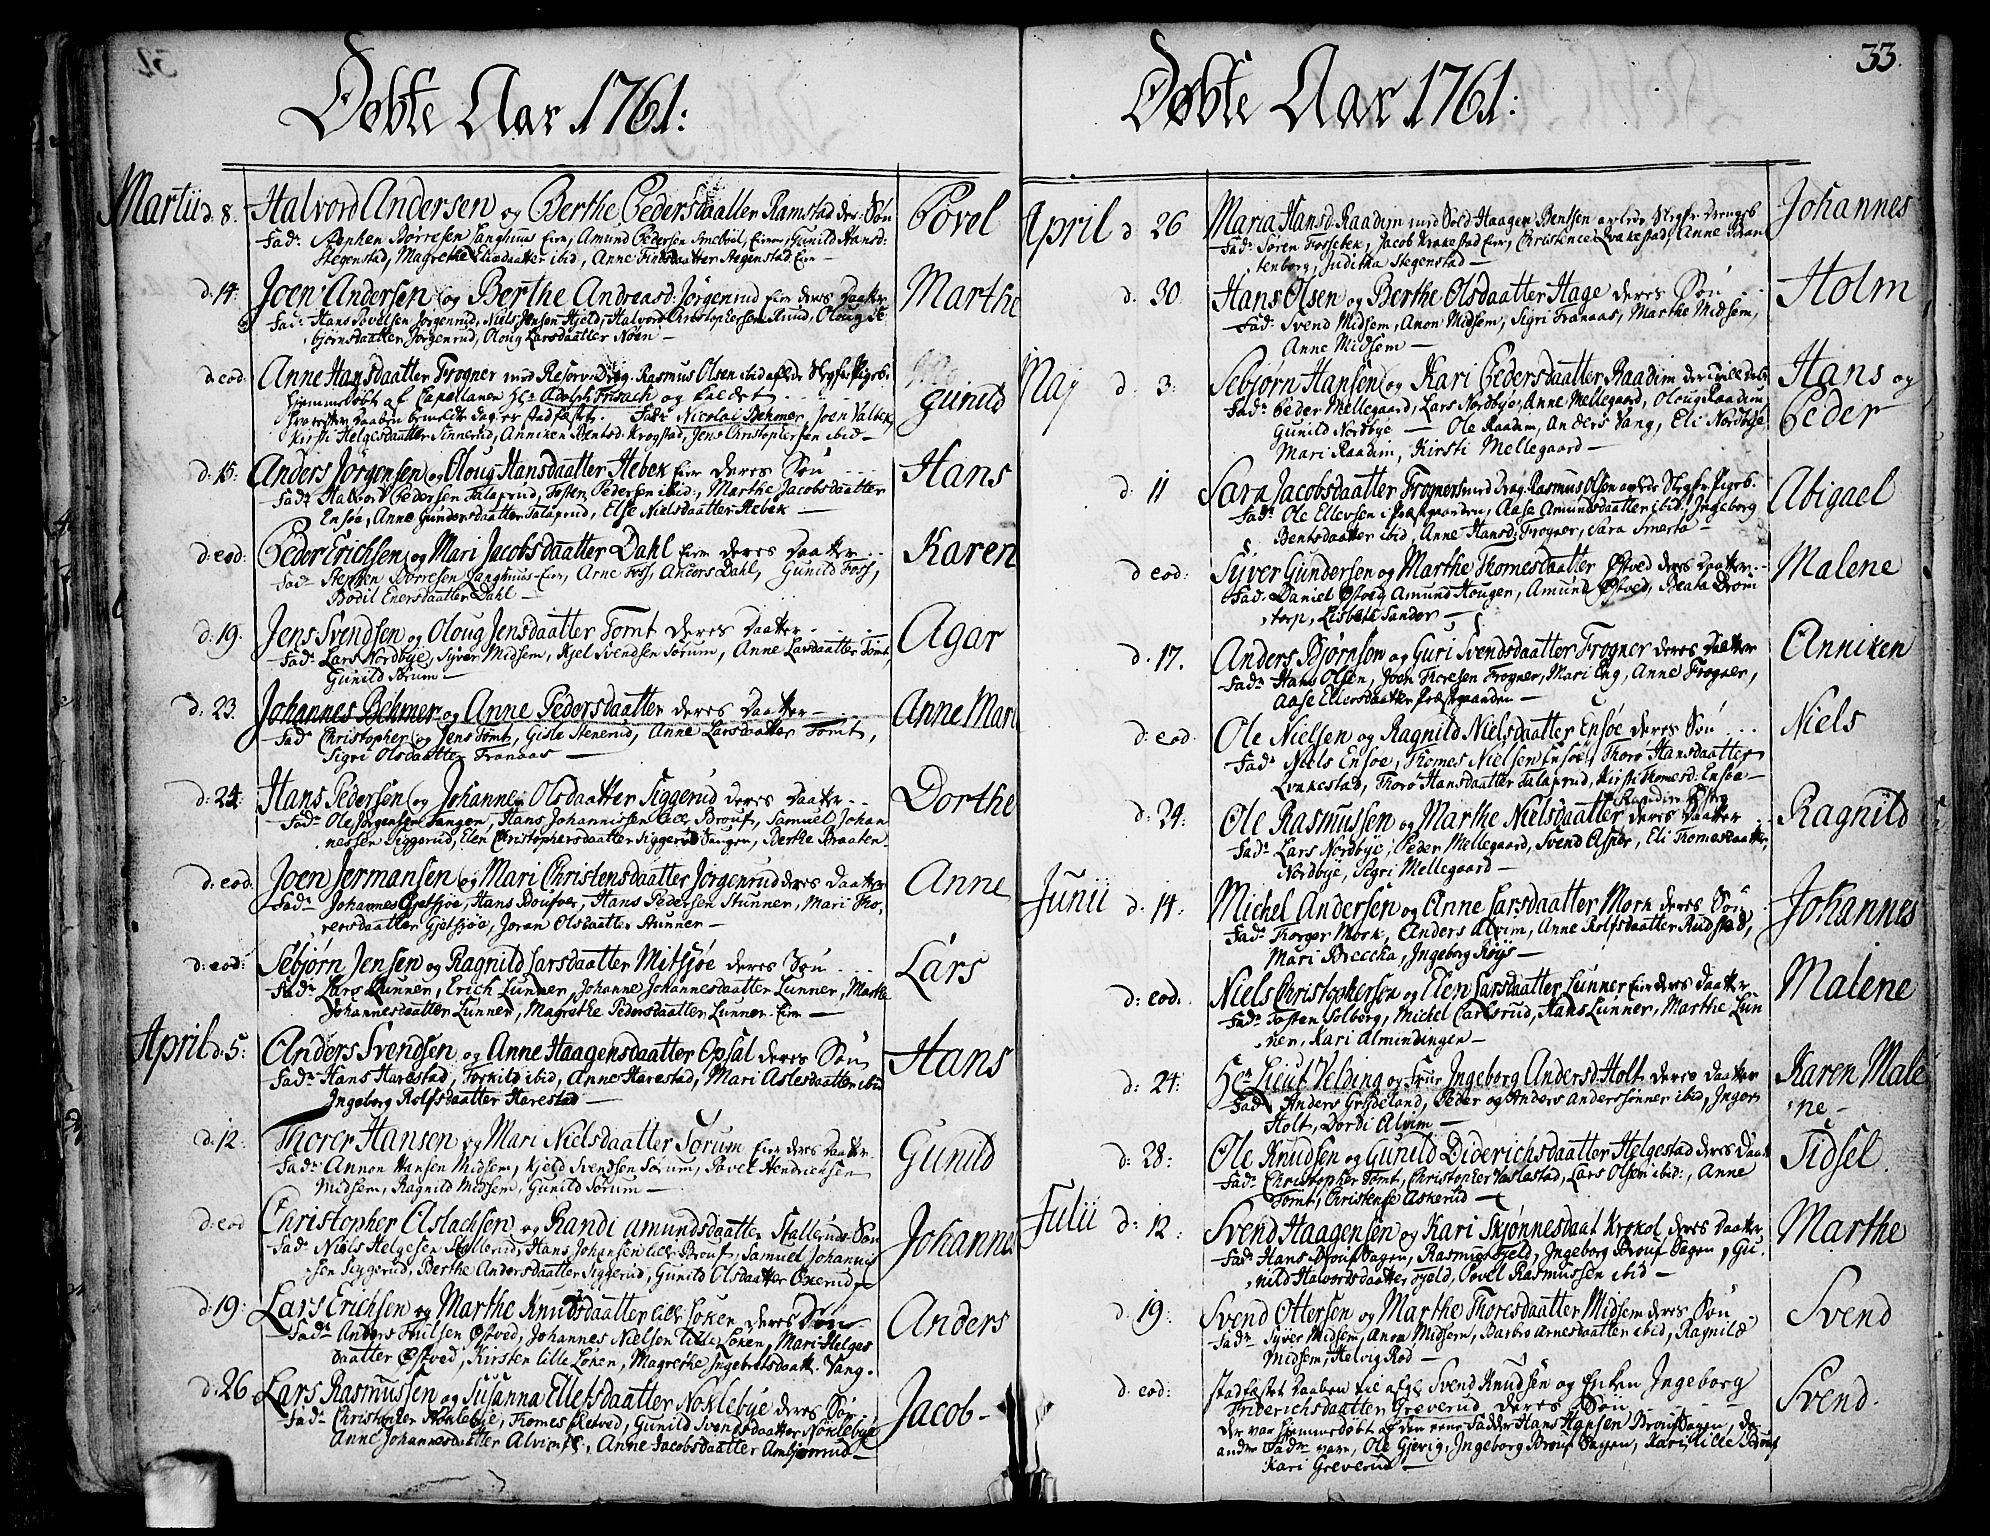 Døbte Aar 1761:
Martii d. 8. Halvord Andersen og Berthe Pedersdaatter Ramstad des: Søn Povel
Fadr Stephen Børresen Langhuus Eier, Amund Pedersen Smebøl, Gunild Hansd:
Stegenstad, Magrethe ibid, Anne Findsdaatter Stegenstad Eier —
d. 14. Joen Andersen og Berthe Andreasd: Jørgenrud Eier deres Daatter Marthe
Fadr Hans Povelsen Jørgenrud, Niels Jensen Hjeld, Halvord Christophersen Ruud, Oloug Se-
bjørnsdaatter Jørgenrud, Oloug Larsdaatter Nøen —
d: eod. Anne Hansdaatter Frogner med Reserv: Drag: Rasmus Olsen ibid aflede Slegfr: Pigeb. Gunild
hjemmedøbt af Capellanen Hr Adolph Frisach og kaldet
hvorefter Daaben bemeldte dag er stadfæstet. Fadr Nicolai Behmer, Joen Valbek,
Kirsti Helgesdaatter Tinnerud, Anniken Bentsd: Krogstad, Jens Christophersen ibid —
d: 15: Anders Jørgensen og Oloug Hansdaatter Hebek Eier deres Søn Hans
Fadr Halvord Pedersen Talaprud, Tosten Pedersen ibid, Marthe Jacobsdaatter
Ensøe, Anne Gundersdaatter Talaprud, Else Nielsdaatter Hebek —
d: eod: Peder Erichsen og Mari Jacobsdaatter Dahl Eier deres Daatter Karen
Fadr Stephen Børresen Langhuus Eier, Arne Foss, Anders Dahl, Gunild Foss,
Bodil Enersdaatter Dahl —
d: 19. Jens Svendsen og Oloug Jensdaatter Tomt deres Daatter Agar
Fadr Lars Nordbye, Syver Midsem, Kjel Svendsen Sørum, Anne Larsdaatter Tomt,
Gunild Sørum —
d: 23. Johannes Behmer og Anne Pedersdaatter deres Daatter Anne Mari
Fadr Christopher og Jens Tomt, Gisle Stenerud, Anne Larsdaatter Tomt,
Sigri Olsdaatter Franaas —
d: 24. Hans Pedersen og Johanne Olsdaatter Siggerud deres Daatter Dorthe
Fadr Ole Jørgensen Tangen, Hans Johannissen lille Brouf, Samuel Johan
nessen Siggerud, Elen Christophersdaatter Siggerud Tangen, Berthe Braaten
d: eod. Joen Jermansen og Mari Christensdaatter Jørgenrud deres Daatter Anne
Fadr Johannes Gjetsjøe, Hans Boufver, Hans Pedersen Stunner, Mari Tho-
rersdaatter Gjetsjøe, Joran Olsdaatter Stunner —
d: eod: Sebjørn Jensen og Ragnild Larsdaatter Mitsjøe deres Søn Lars
Fadr Lars Lunner, Erich Lunner, Johanne Johannesdaatter Lunner, Marthe
Johannesdaatter Lunner, Magrethe Pedersdaatter Lunner Eier —
April d. 5: Anders Svendsen og Anne Haagensdaatter Opsal deres Søn Hans
Fadr Hans Harestad, Torkild ibid, Anne Harestad, Mari Aslesdaatter ibid
Ingeborg Rolfsdaatter Harestad —
d: 12. Thorer Hansen og Mari Nielsdaatter Sørum Eier deres Daatter Gunild
Fadr Annon Hansen Midsem, Kjeld Svendsen Sørum, Povel Hendrichsen
Midsem, Ragnild Midsem, Gunild Sørum —
d: eod Christopher Aslachsen og Randi Amundsdaatter Stallerud: Søn Johannes
Fadr Niels Helgesen Stallerud, Hans Johansen lille Brouf, Samuel Johannis
sen Siggerud, Berthe Andersdaatter Siggerud, Gunild Olsdaatter Oxerud —
d: 19: Lars Erichsen og Marthe Knudsdaatter lille Løken deres Søn Anders
Fadr Anders Østved, Johannes Nielsen lille Løken, Mari Helges
daatter Østved, Kirsten lille Løken, Magrethe Ingebretsdaatt. Vang.
d: 26. Lars Rasmussen og Susanna Ellefsdaatter Nøklebye deres Søn Jacob —
Fadr Christopher Nøklebye, Thomes Østved, Gunild Svendsdaatter Nøklebye
Anne Johannesdaatter Alvim, Anne Jacobsdaatter Ambjørrud —
33.
Døbte Aar 1761:
April d 26 Maria Hansd: Raadim med Sold: Haagen Bentsen avlede Slegfr: Drengeb Johannes
Fadr Søren Fossebek, Jacob Krakestad Eier, Christence Qvakestad, Anne Bran
tenborg, Juditha Stegenstad —
d: 30. Hans Olsen og Berthe Olsdaatter Hage deres Søn Holm
Fadr Svend Midsem, Anon Midsem, Sigri Franaas, Marthe Midsem,
Anne Midsem —
Maj d: 3. Sebjørn Hansen og Kari Pedersdaatter Raadim deres Tvilledøb: Hans og
Fadr Peder Mellegaard, Lars Nordbye, Anne Mellegaard, Oloug Raadim, Peder
Gunild Nordbye — Ole Raadim, Anders Vang, Eli Nordbye
Mari Raadim, Kirsti Mellegaard —
d: 11 Sara Jacobsdaatter Frogner med Drag. Rasmus Olsen avlede Slegfr: Pigeb. Abigael
Fadr Ole Ellevsen i Præstgaarden, Aase Amundsdaatter ibid, Ingeborg
Bentsdaatter ibid, Anne Hansd: Frogner, Sara Smerta —
d eod: Syver Gundersen og Marthe Thomesdaatter Østved deres Daatter Malene
Fadr Daniel Østved, Amund Hougen, Amund Østved, Beata Drøm
torp, Lisbeth Sander —
d: 17. Anders Bjørnsøn og Guri Svendsdaatter Frogner deres Daatter Anniken
Fadr Hans Olsen, Joen Thoresen Frogner, Mari Eng, Anne Frogner,
Aase Ellersdaatter Præstgaarden —
d: eod. Ole Nielsen og Ragnild Nielsdaatter Ensøe deres Søn Niels
Fadr Niels Ensøe, Thomes Nielsen Ensøe, Thoro Hansdaatter
Qvakestad, Thoro Hansdaatter Talaprud, Kirsti Thomesd: Ensøe —
d: 24: Ole Rasmussen og Marthe Nielsdaatter deres Daatter Ragnild
Fadr Lars Nordbye, Peder Mellegaard, Svend Asper, Eli Thomesdaatter
Nordbye, Sigri Mellegaard —
Junii d. 14: Michel Andersen og Anne Larsdaatter Mork deres Søn Johannes
Fadr Thorger Mork, Anders Alvim, Anne Rolfsdaatter Rudstad,
Mari Breecka, Ingeborg Røiis —
d: eod. Niels Christophersen og Elen Larsdaatter Lunner Eier deres Daatter Malene
Fadr Tosten Solberg, Michel Carlsrud, Hans Lunner, Marthe Lun
ner, Kari Almindingen —
d: 24: Hr Lieut Velding og Frue Ingeborg Andersd: Holt deres Daatter Karen Male
Fadr Anders Grisdeland, Peder og Anders Anderssønner ibid, Inger ne —
Holt, Dordi Alvim —
d: 28: Ole Knudsen og Gunild Diderichsdaatter Helgestad deres Daat Sidsel.
Fadr Christopher Tomt, Christopher Haslestad, Lars Olsen ibid:, Anne
Tomt, Christense Askerud —
Julii d: 12: Svend Haagensen og Kari Skjønnesdaat Krokol deres Daatter Marthe
Fadr Hans Brouf Sagen, Rasmus Fjeld, Ingeborg Brouf Sagen, Gu-
nild Halvordsdaatter Fjeld, Povel Rasmussen ibid —
d: 19: Svend Ottersen og Marthe Thoresdaatter Midsem deres Søn Svend
Fadr Syver Midsem, Anon Midsem, Barbro Arnesdaatter ibid, Ragnild
Midsem, Helvig Rød —
d: eod: Stadfæstet Daaben til afgl. Svend Knudsen og Enken Ingeborg Svend.
Friderichsdaatter Greverud deres Søn
der var hjemmedøbt af den eene Fadder Hans Hansen Brouf Sagen, de
andre Fadr var, Ole Gjevig, Ingeborg Brouf Sagen, Kari lille Brouf
Kari Greverud —